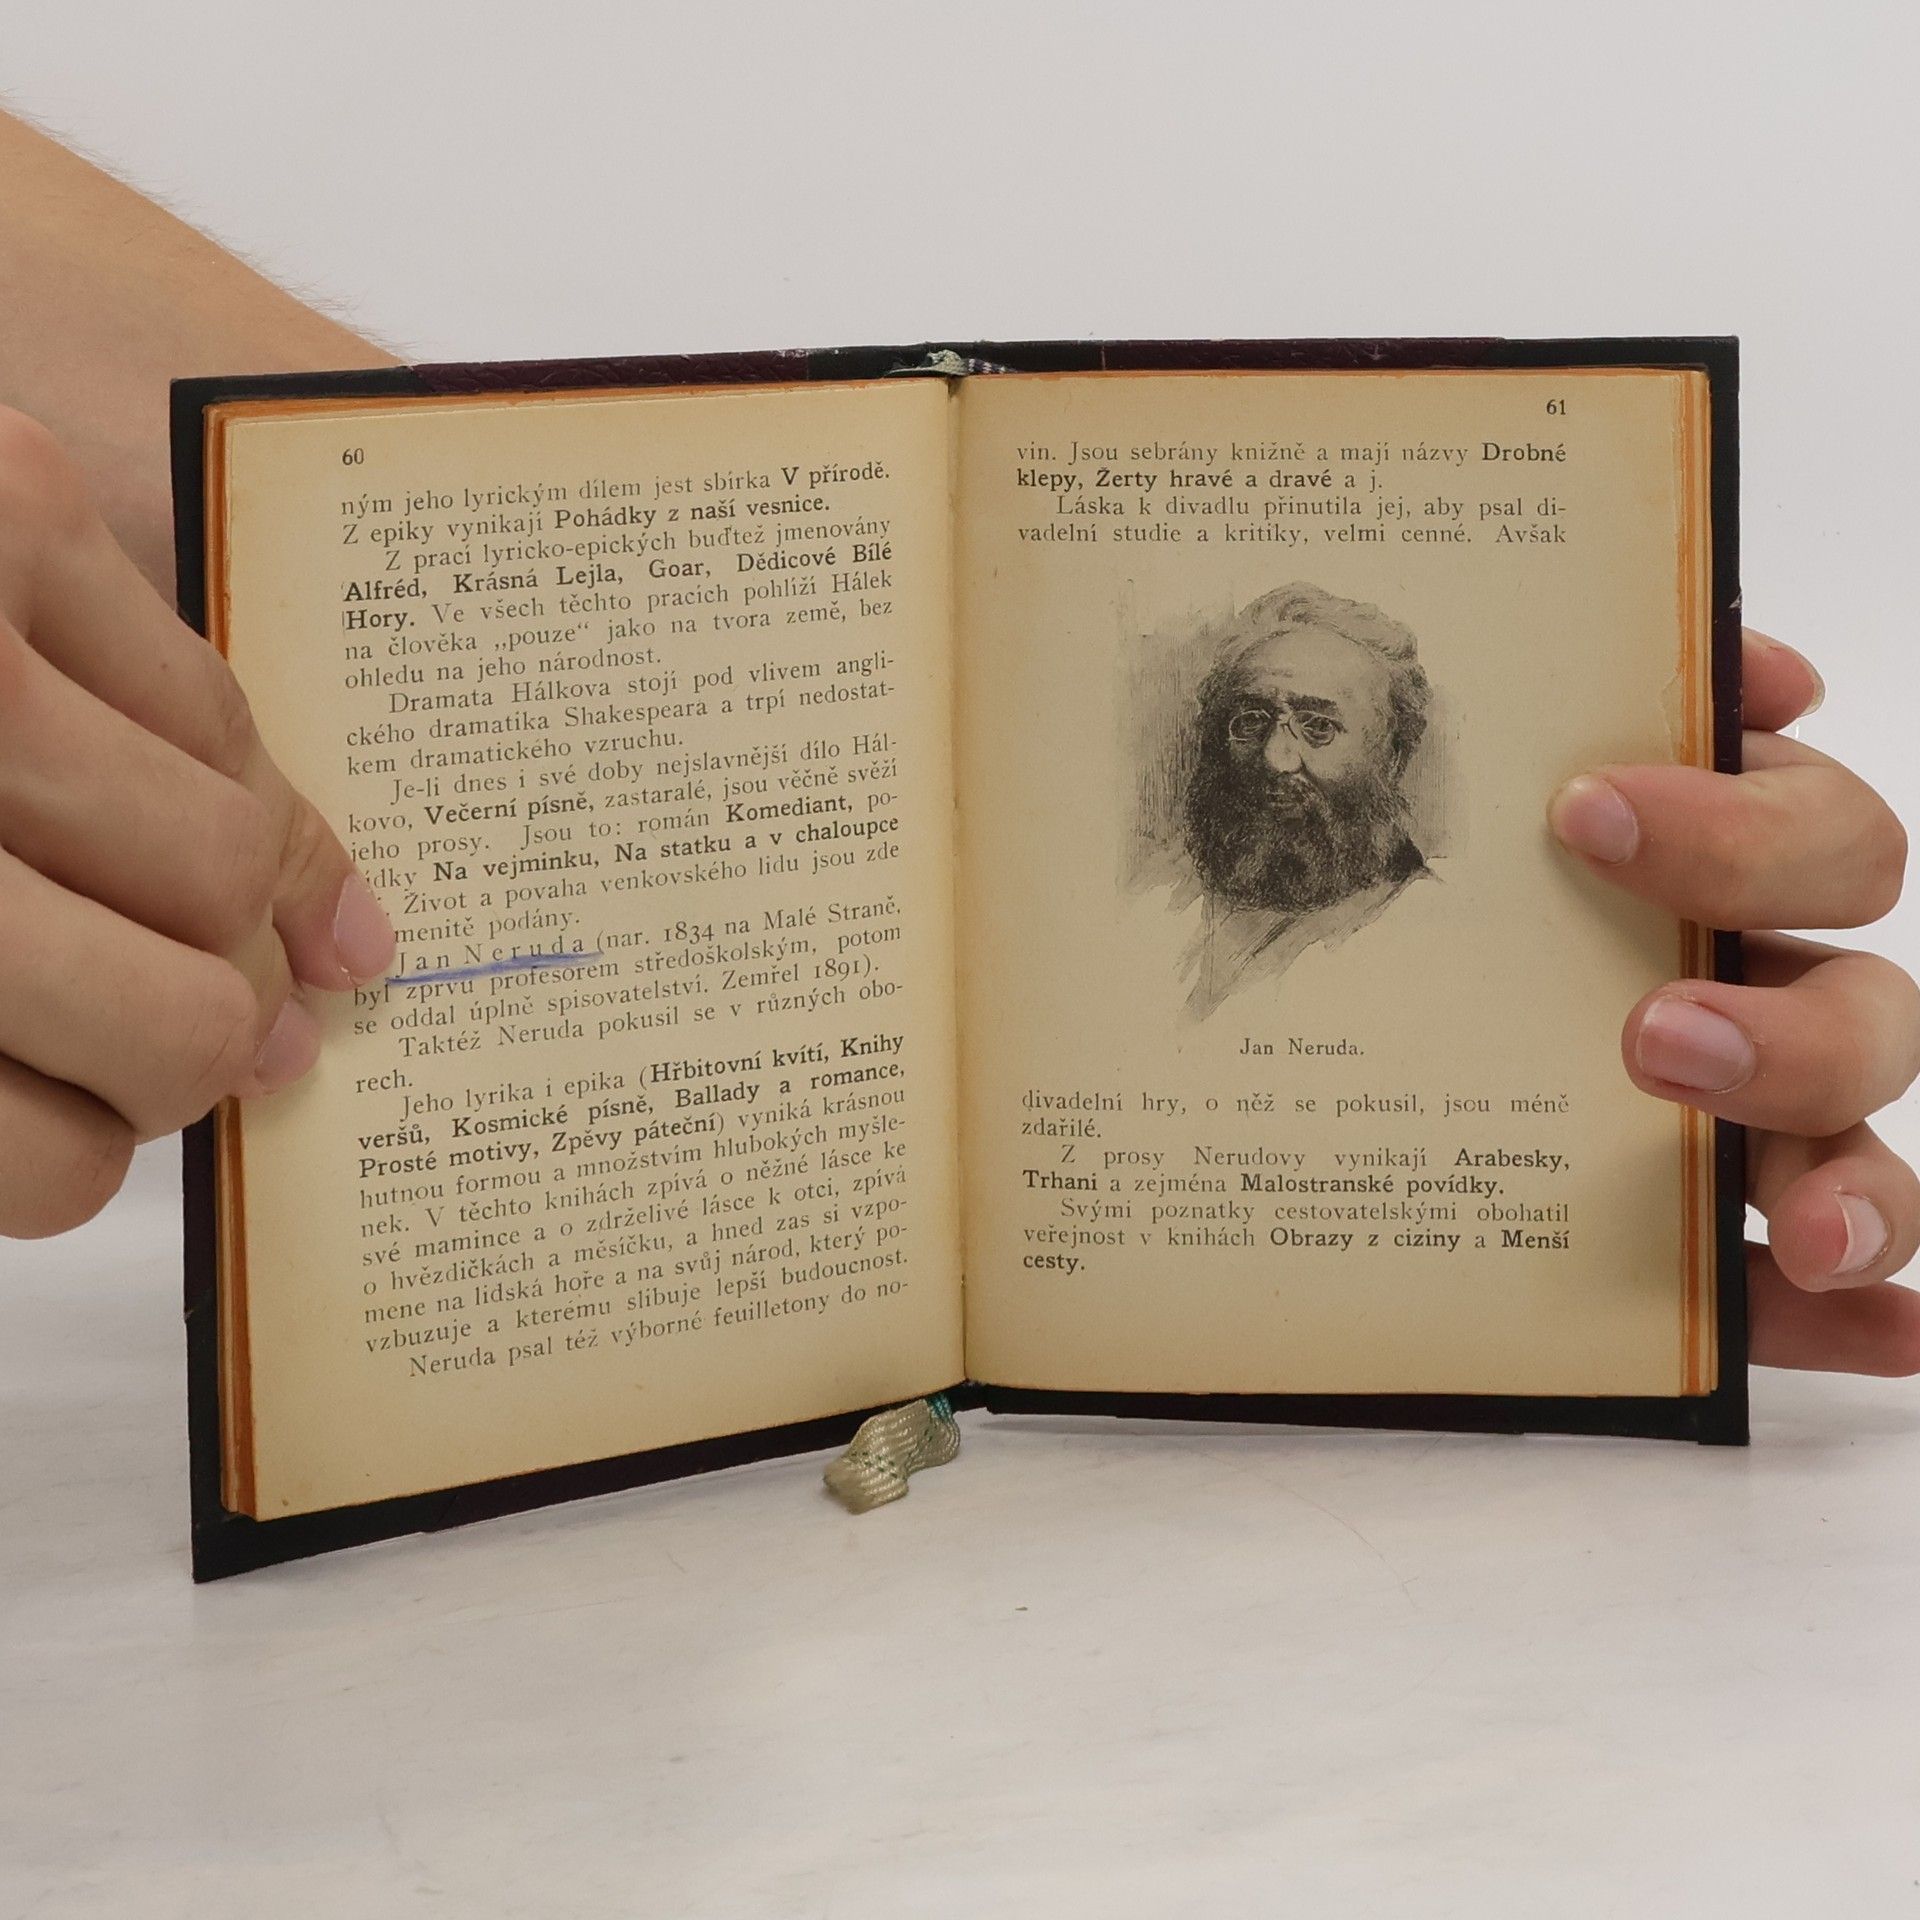 60
ným jeho lyrickým dílem jest sbírka V přírodě.
Z epiky vynikají Pohádky z naší vesnice.
Z prací lyricko-epických buďtež jmenovány
Alfréd, Krásná Lejla, Goar, Dědicové Bílé
Hory. Ve všech těchto pracích pohlíží Hálek
na člověka „pouze“ jako na tvora země, bez
ohledu na jeho národnost.
Dramata Hálkova stojí pod vlivem angli-
ckého dramatika Shakespeara a trpí nedostat-
kem dramatického vzruchu.
Je-li dnes i své doby nejslavnější dílo Hál-
kovo, Večerní písně, zastaralé, jsou věčně svěží
jeho prosy. Jsou to: román Komediant, po-
ídky Na vejminku, Na statku a v chaloupce
Život a povaha venkovského lidu jsou zde
menitě podány.
Jan Neruda (nar. 1834 na Malé Straně,
byl zprvu profesorem středoškolským, potom
se oddal úplně spisovatelství. Zemřel 1891).
Taktéž Neruda pokusil se v různých obo-
rech.
Jeho lyrika i epika (Hřbitovní kvítí, Knihy
veršů, Kosmické písně, Ballady a romance,
Prosté motivy, Zpěvy páteční) vyniká krásnou
hutnou formou a množstvím hlubokých myšle-
nek. V těchto knihách zpívá o něžné lásce ke
své mamince a o zdrželivé lásce k otci, zpívá
o hvězdičkách a měsíčku, a hned zas si vzpo-
mene na lidská hoře a na svůj národ, který po-
vzbuzuje a kterému slibuje lepší budoucnost.
Neruda psal též výborné feuilletony do no-
61
vin. Jsou sebrány knižně a mají názvy Drobné
klepy, Žerty hravé a dravé a j.
Láska k divadlu přinutila jej, aby psal di-
vadelní studie a kritiky, velmi cenné. Avšak
Jan Neruda.
divadelní hry, o něž se pokusil, jsou méně
zdařilé.
Z prosy Nerudovy vynikají Arabesky,
Trhani a zejména Malostranské povídky.
Svými poznatky cestovatelskými obohatil
veřejnost v knihách Obrazy z ciziny a Menší
cesty.